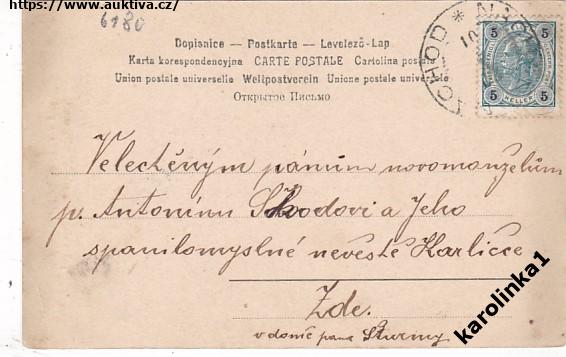 https://www.auktiva.cz/
6180
Dopisnice — Postkarte — Levelező-Lap
Karta korespondencyjna CARTE POSTALE Cartolina postale
Union postale universelle Weltpostverein Unione postale universale
Открытое Письмо
NÁCHOD *
5 5
5 HELLER 5
Velectěným pánům novomanzelům
p. Antonínu Škodovi a Jeho
spanilomyslné nevěstě Karličce
Zde.
v domě pana Šturmy
karolinka1